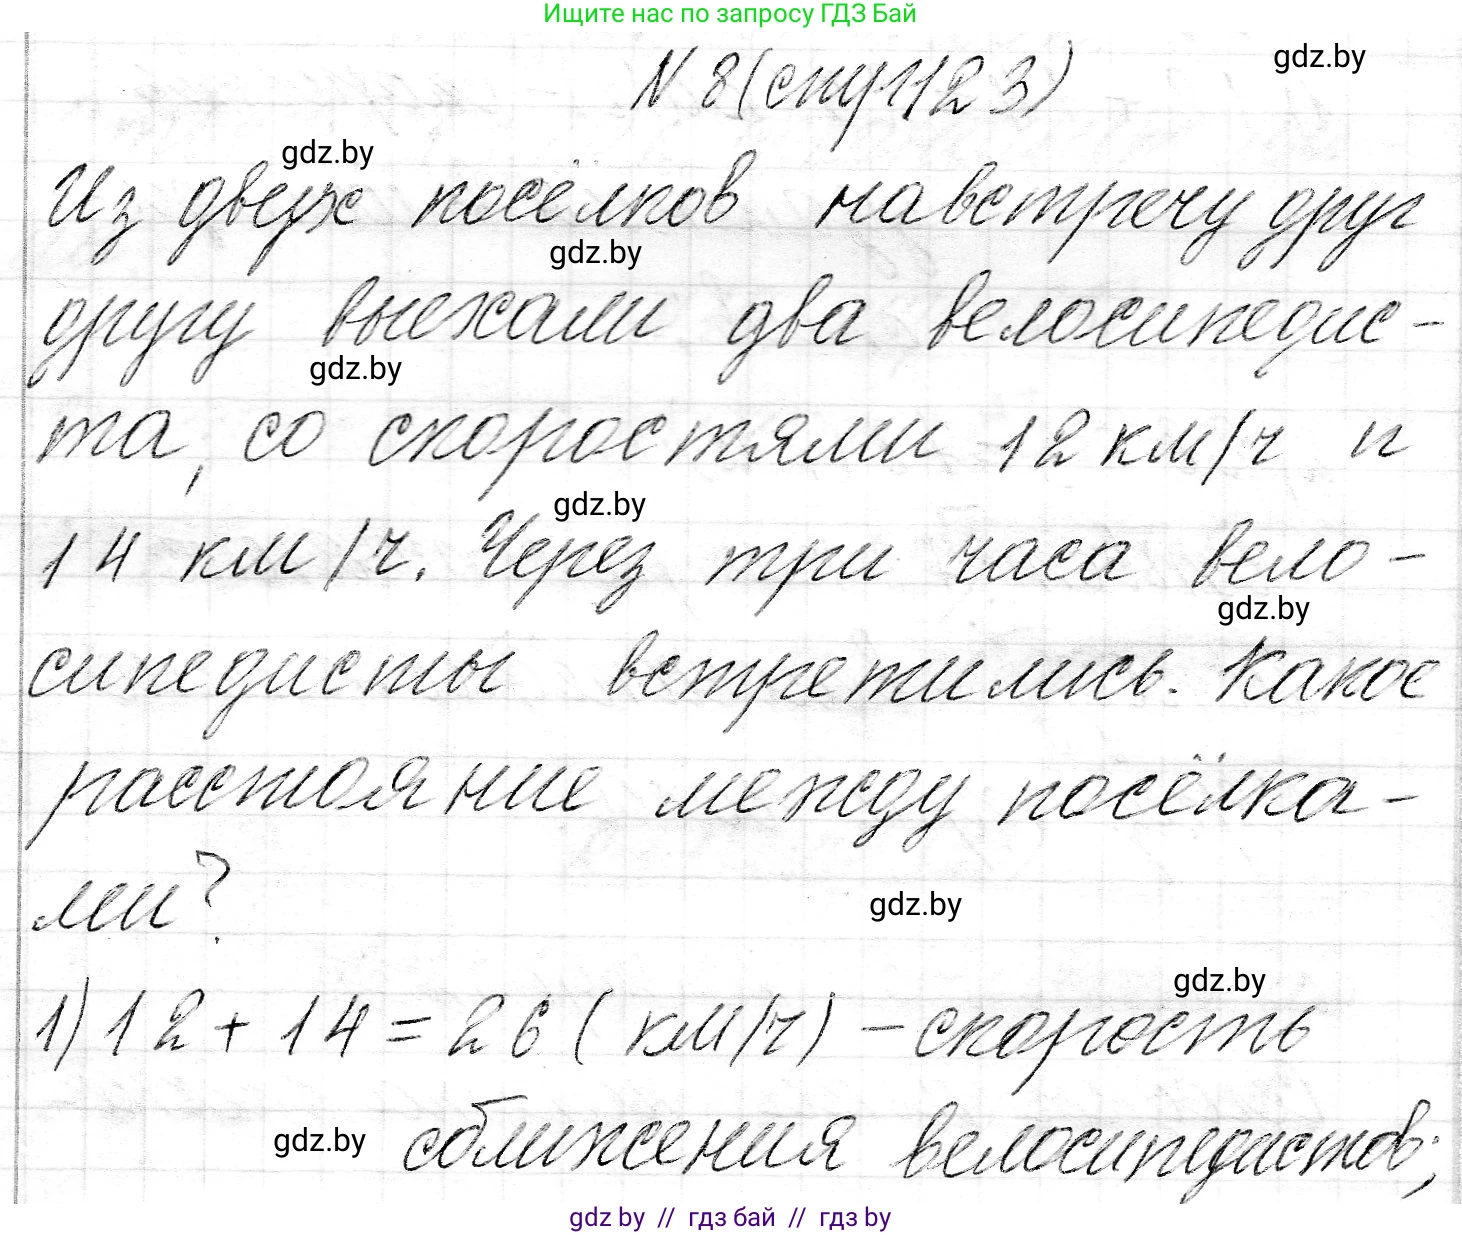 Ищите нас по запросу ГДЗ Бай
N 8 (стр 123) gdz.by
gdz.by
Из двух посёлков навстречу друг
gdz.by
другу выехали два велосипедис-
gdz.by
та, со скоростями 12 км/ч и
gdz.by
14 км/ч. Через три часа вело-
gdz.by
сипедисты встретились. Какое
расстояние между посёлка-
ми?
gdz.by
gdz.by
1) 12 + 14 = 26 (км/ч) - скорость
gdz.by сближения велосипедистов;
gdz by // гдз бай // гдз by